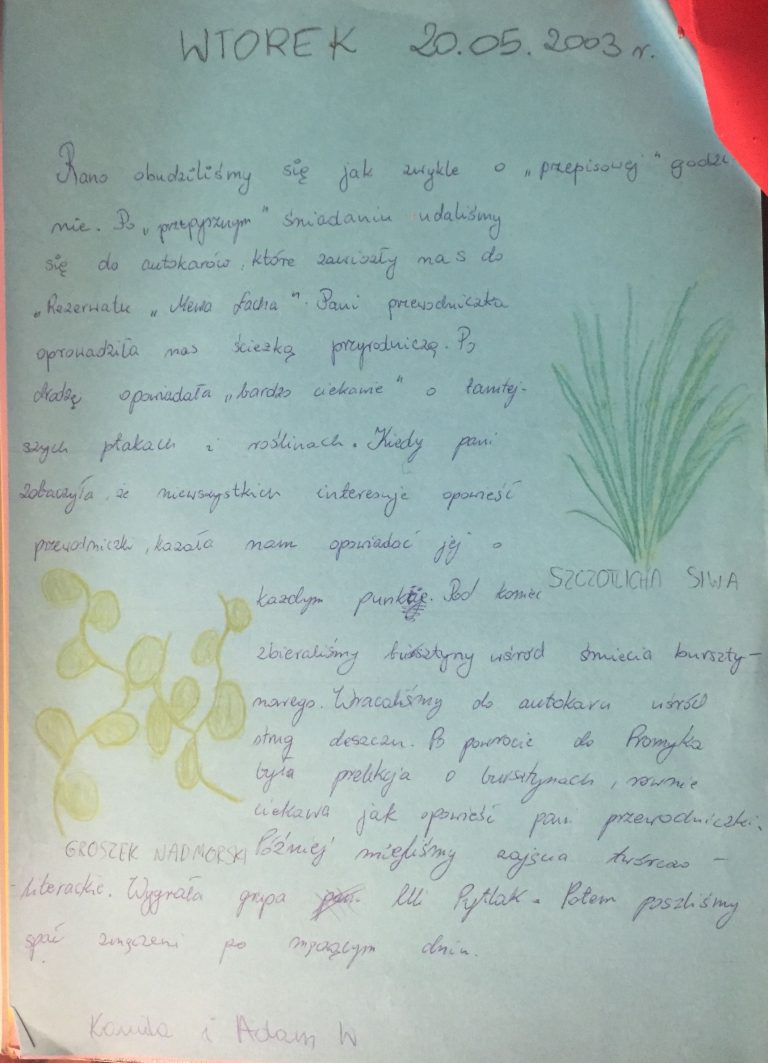 WTOREK 20.05.2003 r.
Rano obudziliśmy się jak zwykle o „przepisowej" godzi
nie. Po „przepysznym" śniadaniu udaliśmy
się do autokarów, które zawiozły nas do
„Rezerwatu „Mewia Łacha". Pani przewodniczka
oprowadziła nas ścieżką przyrodniczą. Po
drodze opowiadała „bardzo ciekawie" o tamtej-
szych ptakach i roślinach. Kiedy pani
zobaczyła, że niewszystkich interesuje opowieść
przewodniczki, kazała nam opowiadać jej o
każdym punkcie. Pod koniec
SZCZOTLICHA SIWA
zbieraliśmy bursztyny wśród śmiecia burszty-
nowego. Wracaliśmy do autokaru wśród
strug deszczu. Po powrocie do Promyka
była prelekcja o bursztynach, równie
ciekawa jak opowieść pani przewodniczki.
GROSZEK NADMORSKI
Później mieliśmy zajęcia twórczo -
- literackie. Wygrała grupa Uli Pytlak. Potem poszliśmy
spać zmęczeni po męczącym dniu.
Kamila i Adam W